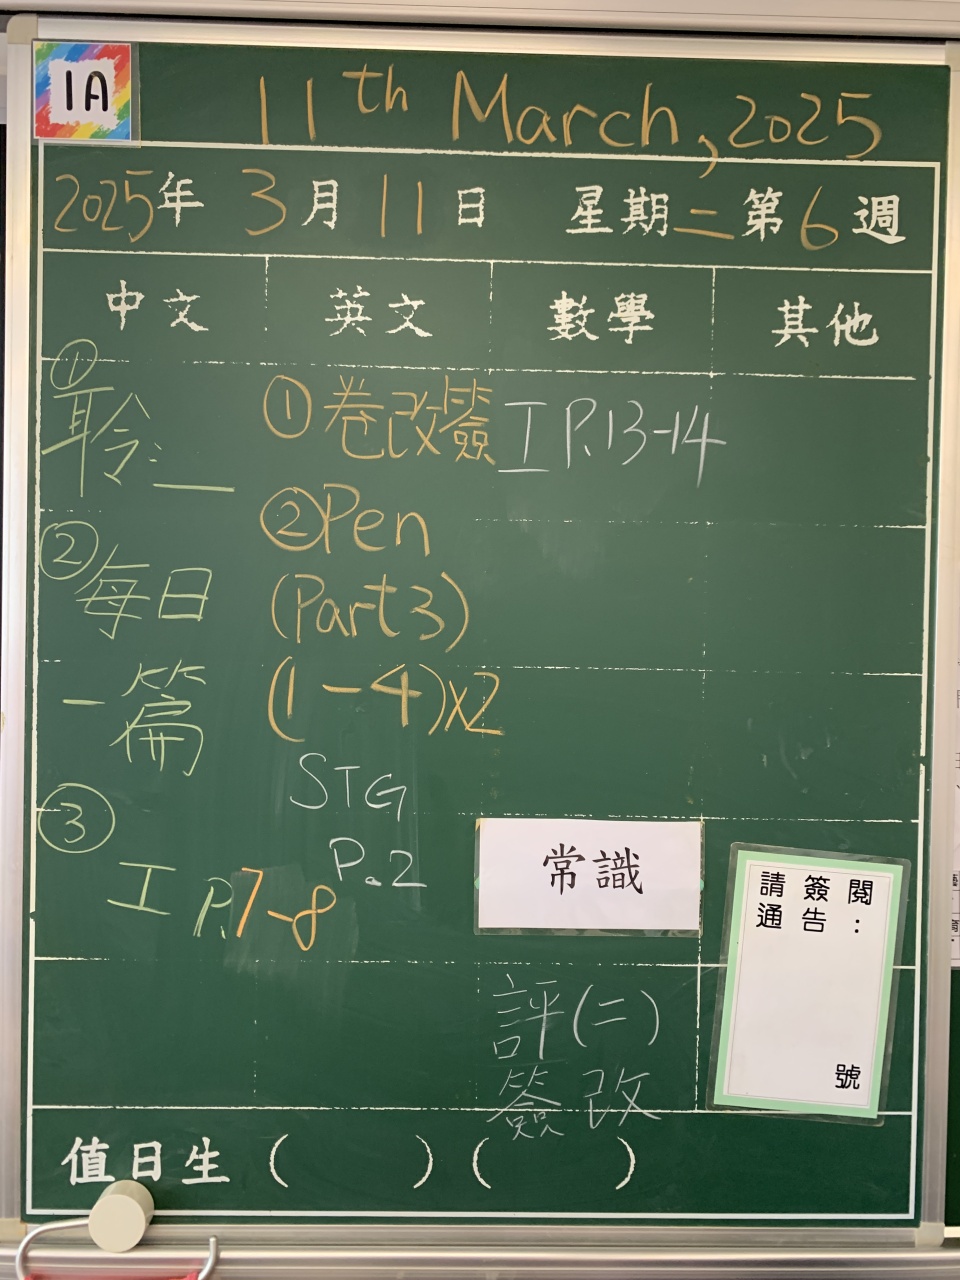 1A
11th March, 2025
2025年 3月 11日 星期二 第6週
中文 英文 數學 其他
①
聆:__
②每日
一篇
③
工 P.7-8
①卷改簽
②Pen
(Part 3)
(1-4)x2
STG
P.2
工 P.13-14
常識
評(二)
簽改
請簽閱
通告:
號
值日生( )( )